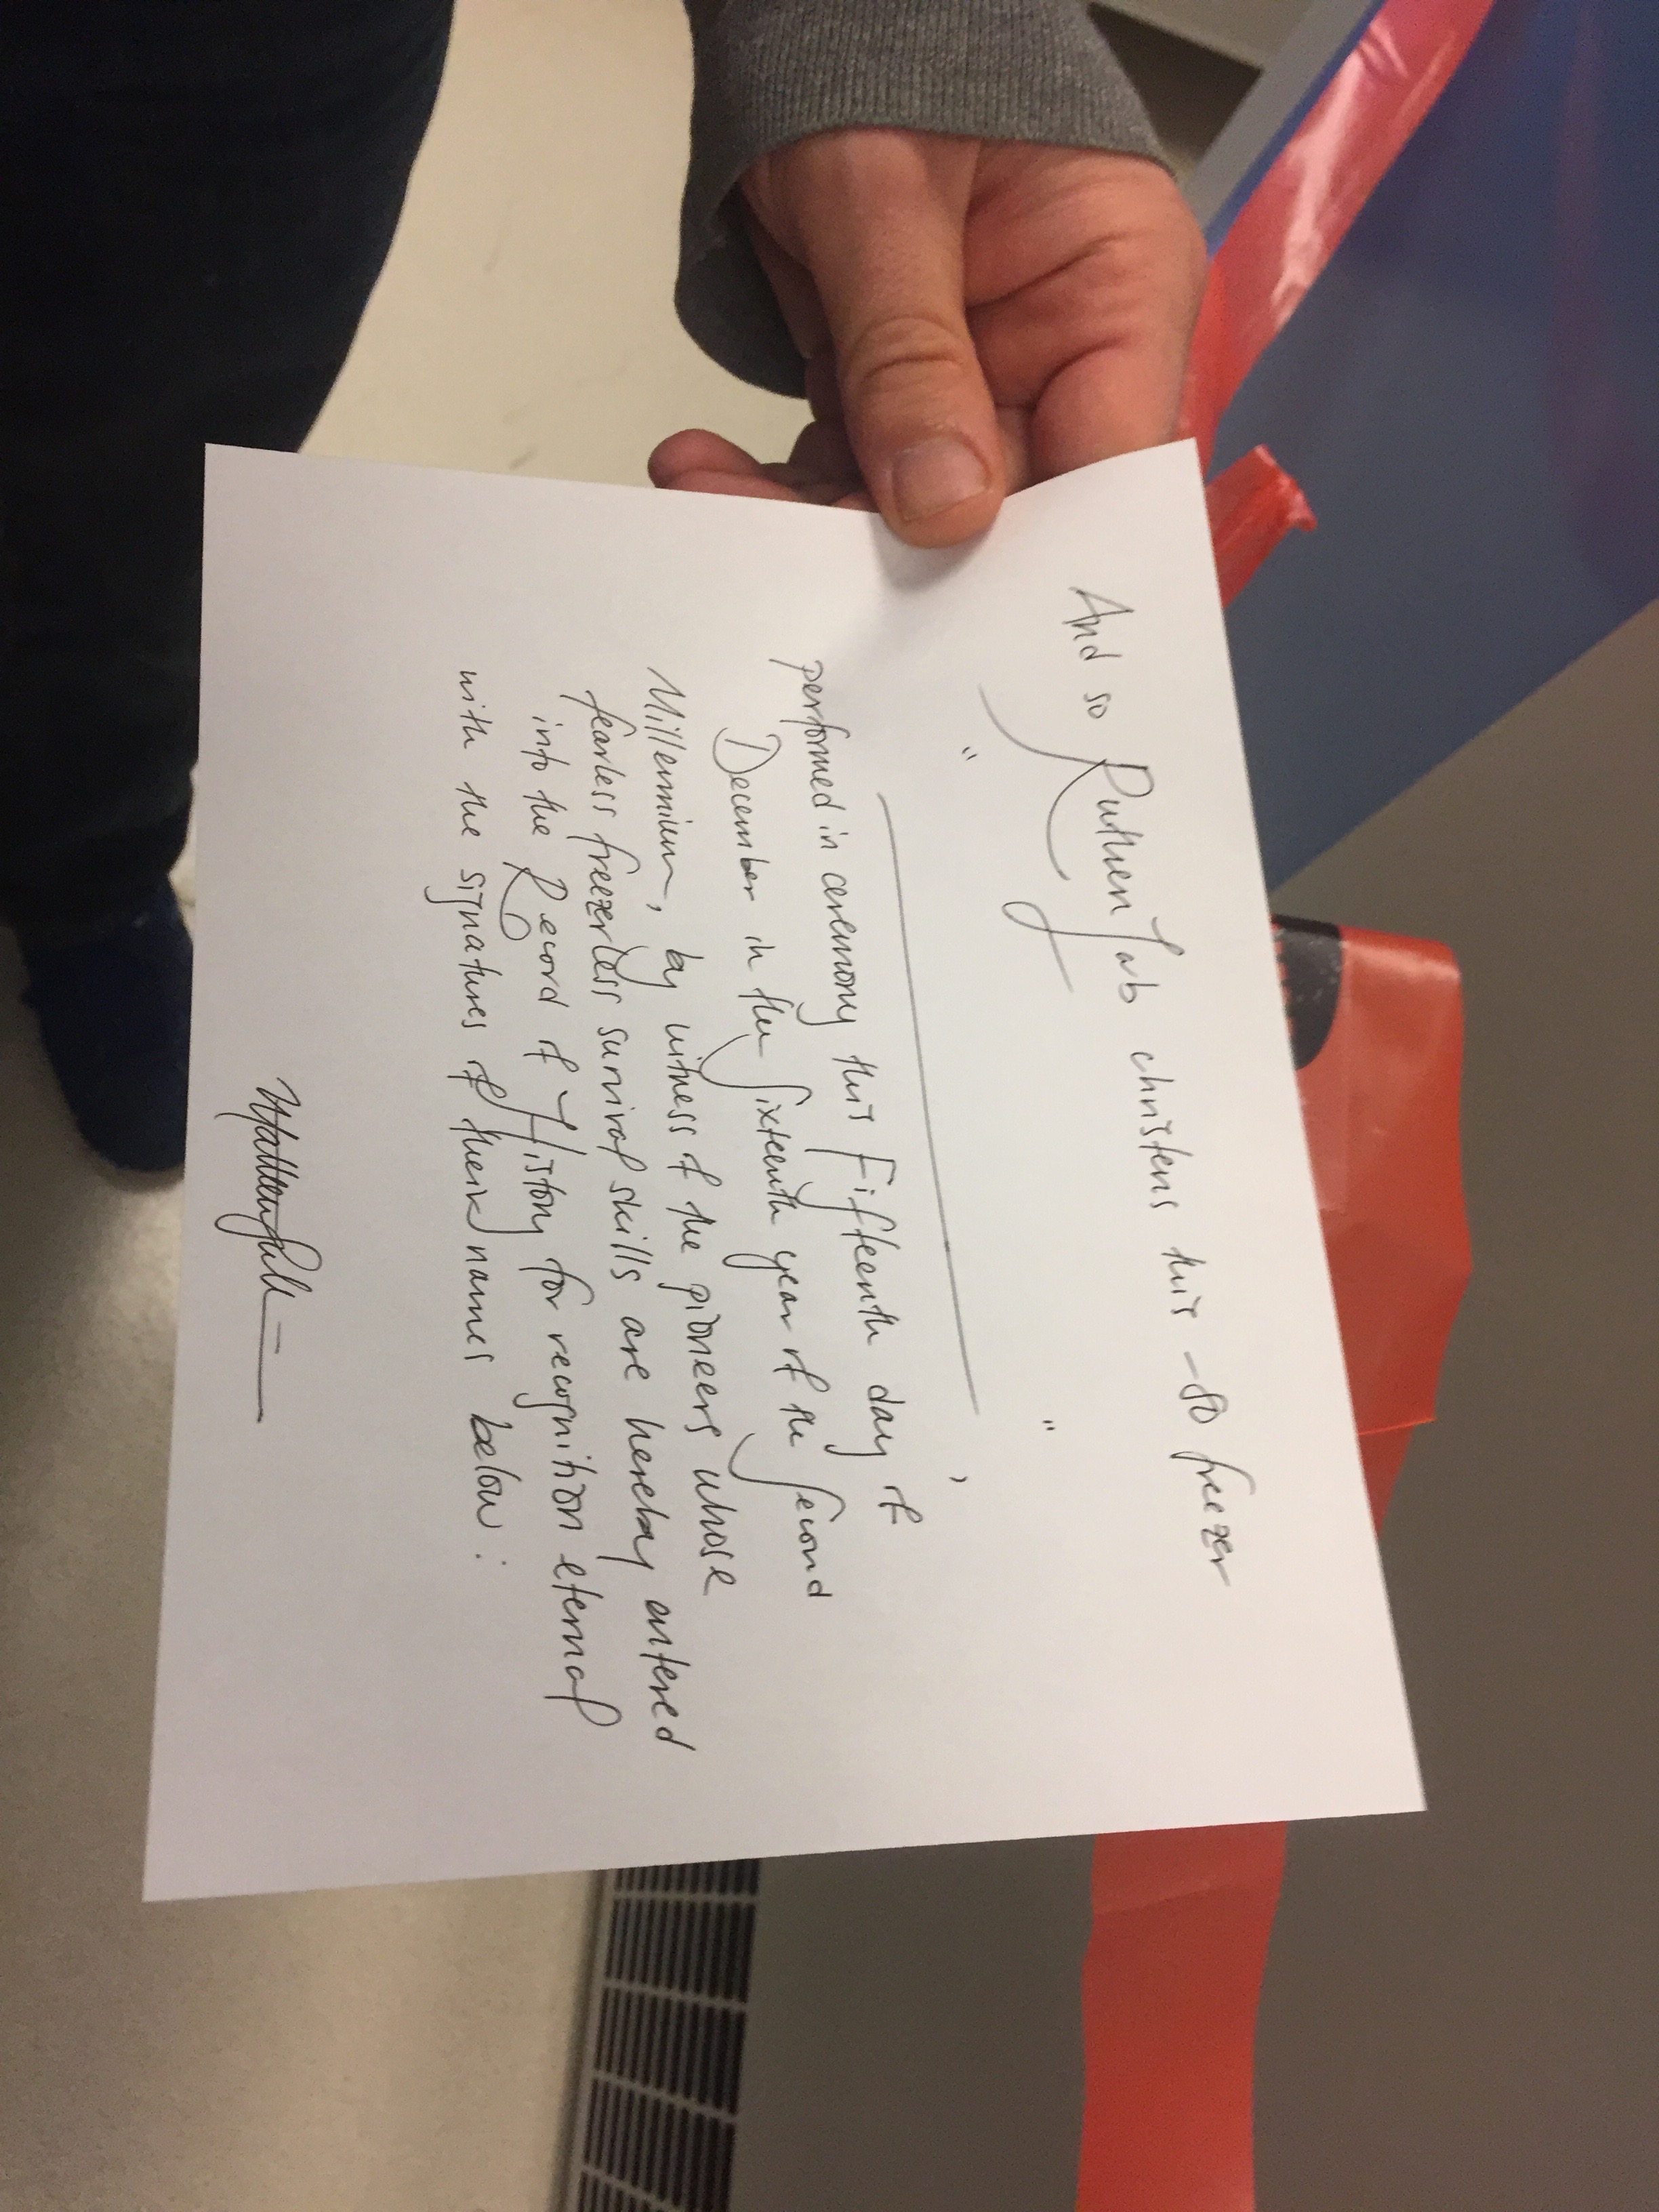 And so Ruthen Lab christens this -80 freezer
" "
,
performed in ceremony this Fifteenth day of
December in the Sixteenth year of the Second
Millennium, by witness of the pioneers whose
fearless freezerless survival skills are hereby entered
into the Record of History for recognition eternal
with the signatures of their names below: